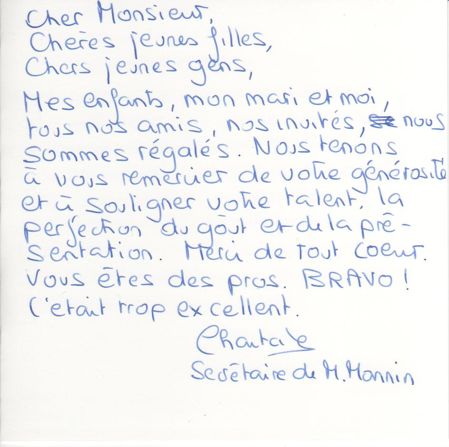 Cher Monsieur,
Chères jeunes filles,
Chers jeunes gens,
Mes enfants, mon mari et moi,
tous nos amis, nos invités, nous
sommes régalés. Nous tenons
à vous remercier de votre générosité
et à souligner votre talent, la
perfection du goût et de la pré-
sentation. Merci de tout coeur.
Vous êtes des pros. BRAVO !
C'était trop excellent.
Chantale
Secrétaire de M. Monnin